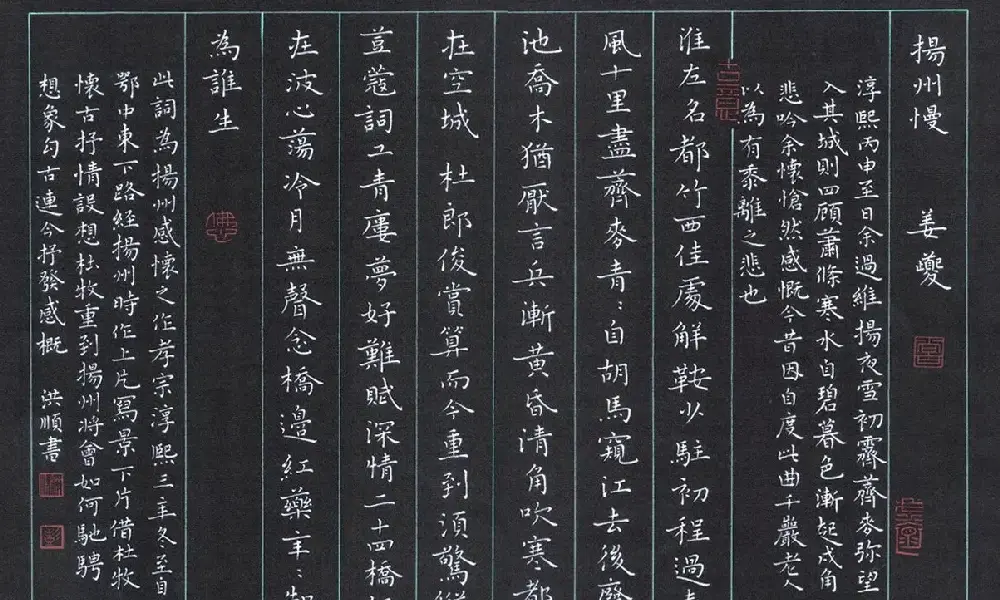 揚州慢 姜夔
淳熙丙申至日余過維揚夜雪初霽薺麥弥望
入其城則四顧蕭條寒水自碧暮色漸起戍角
悲吟余懷愴然感慨今昔因自度此曲千巖老人
以為有黍離之悲也
淮左名都竹西佳處解鞍少駐初程過春
風十里盡薺麥青〻自胡馬窺江去後廢
池喬木猶厭言兵漸黃昏清角吹寒都
在空城 杜郎俊賞算而今重到須驚縱
荳蔻詞工青廔夢好難賦深情二十四橋
在波心蕩冷月無聲念橋邊紅藥年〻知
為誰生
此詞為揚州感懷之作孝宗淳熙三年冬至自
鄂中東下路經揚州時作上片寫景下片借杜牧
懷古抒情設想杜牧重到揚州將會如何馳騁
想象勾古連今抒發感概 洪順書